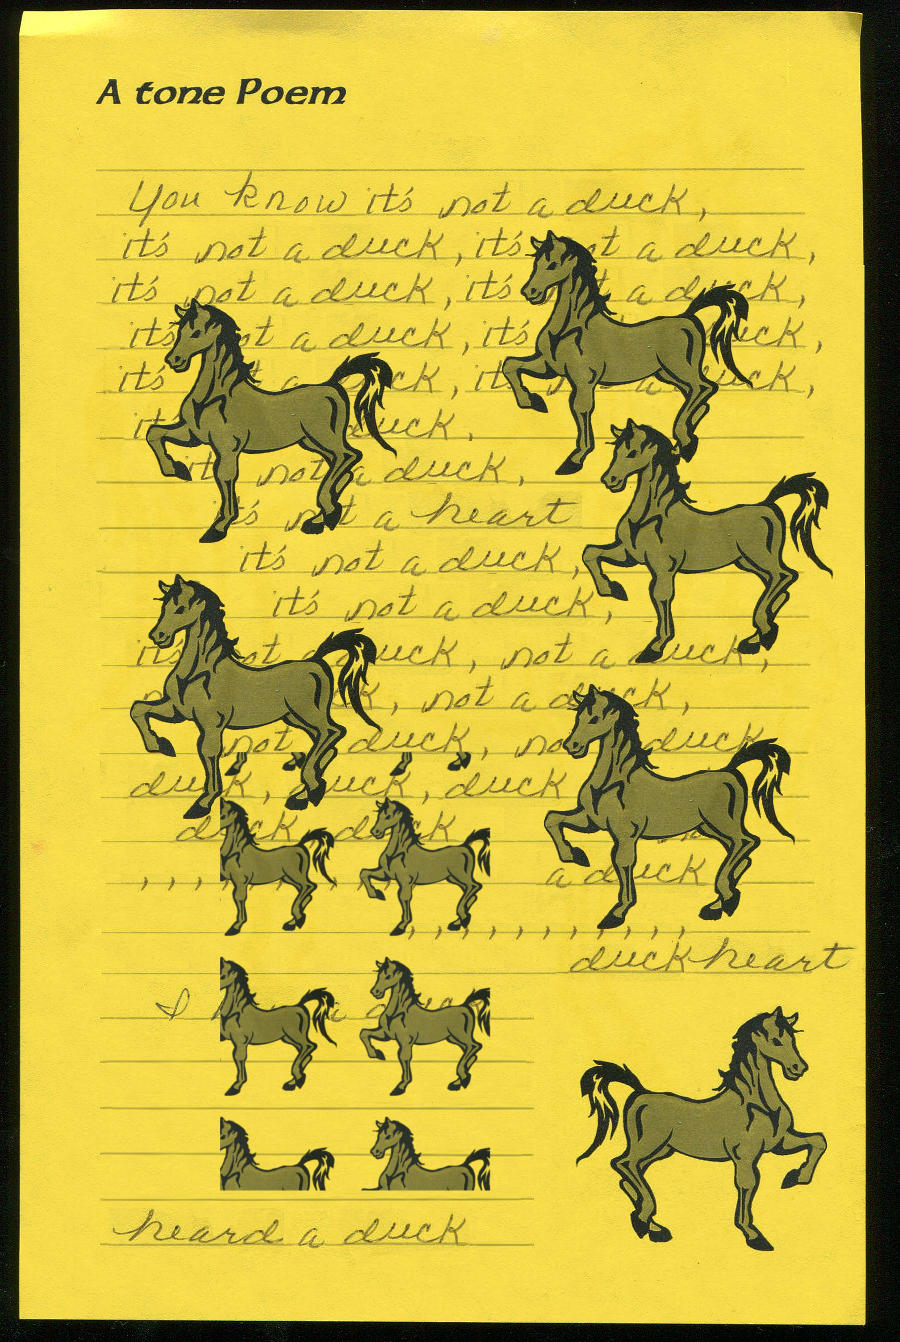 A tone Poem
You know it's not a duck,
it's not a duck, it's a duck,
it's not a duck, it's a duck,
it's a duck, it's duck,
it's a duck, a duck,
duck,
it not a duck,
not a heart
it's not a duck,
it's not a duck,
it's not a duck, not a duck,
, not a duck,
not duck, duck
duck, duck, duck
duck duck
, , ,
a duck
, , , , , , , , , , ,
duck heart
I a duck
heard a duck